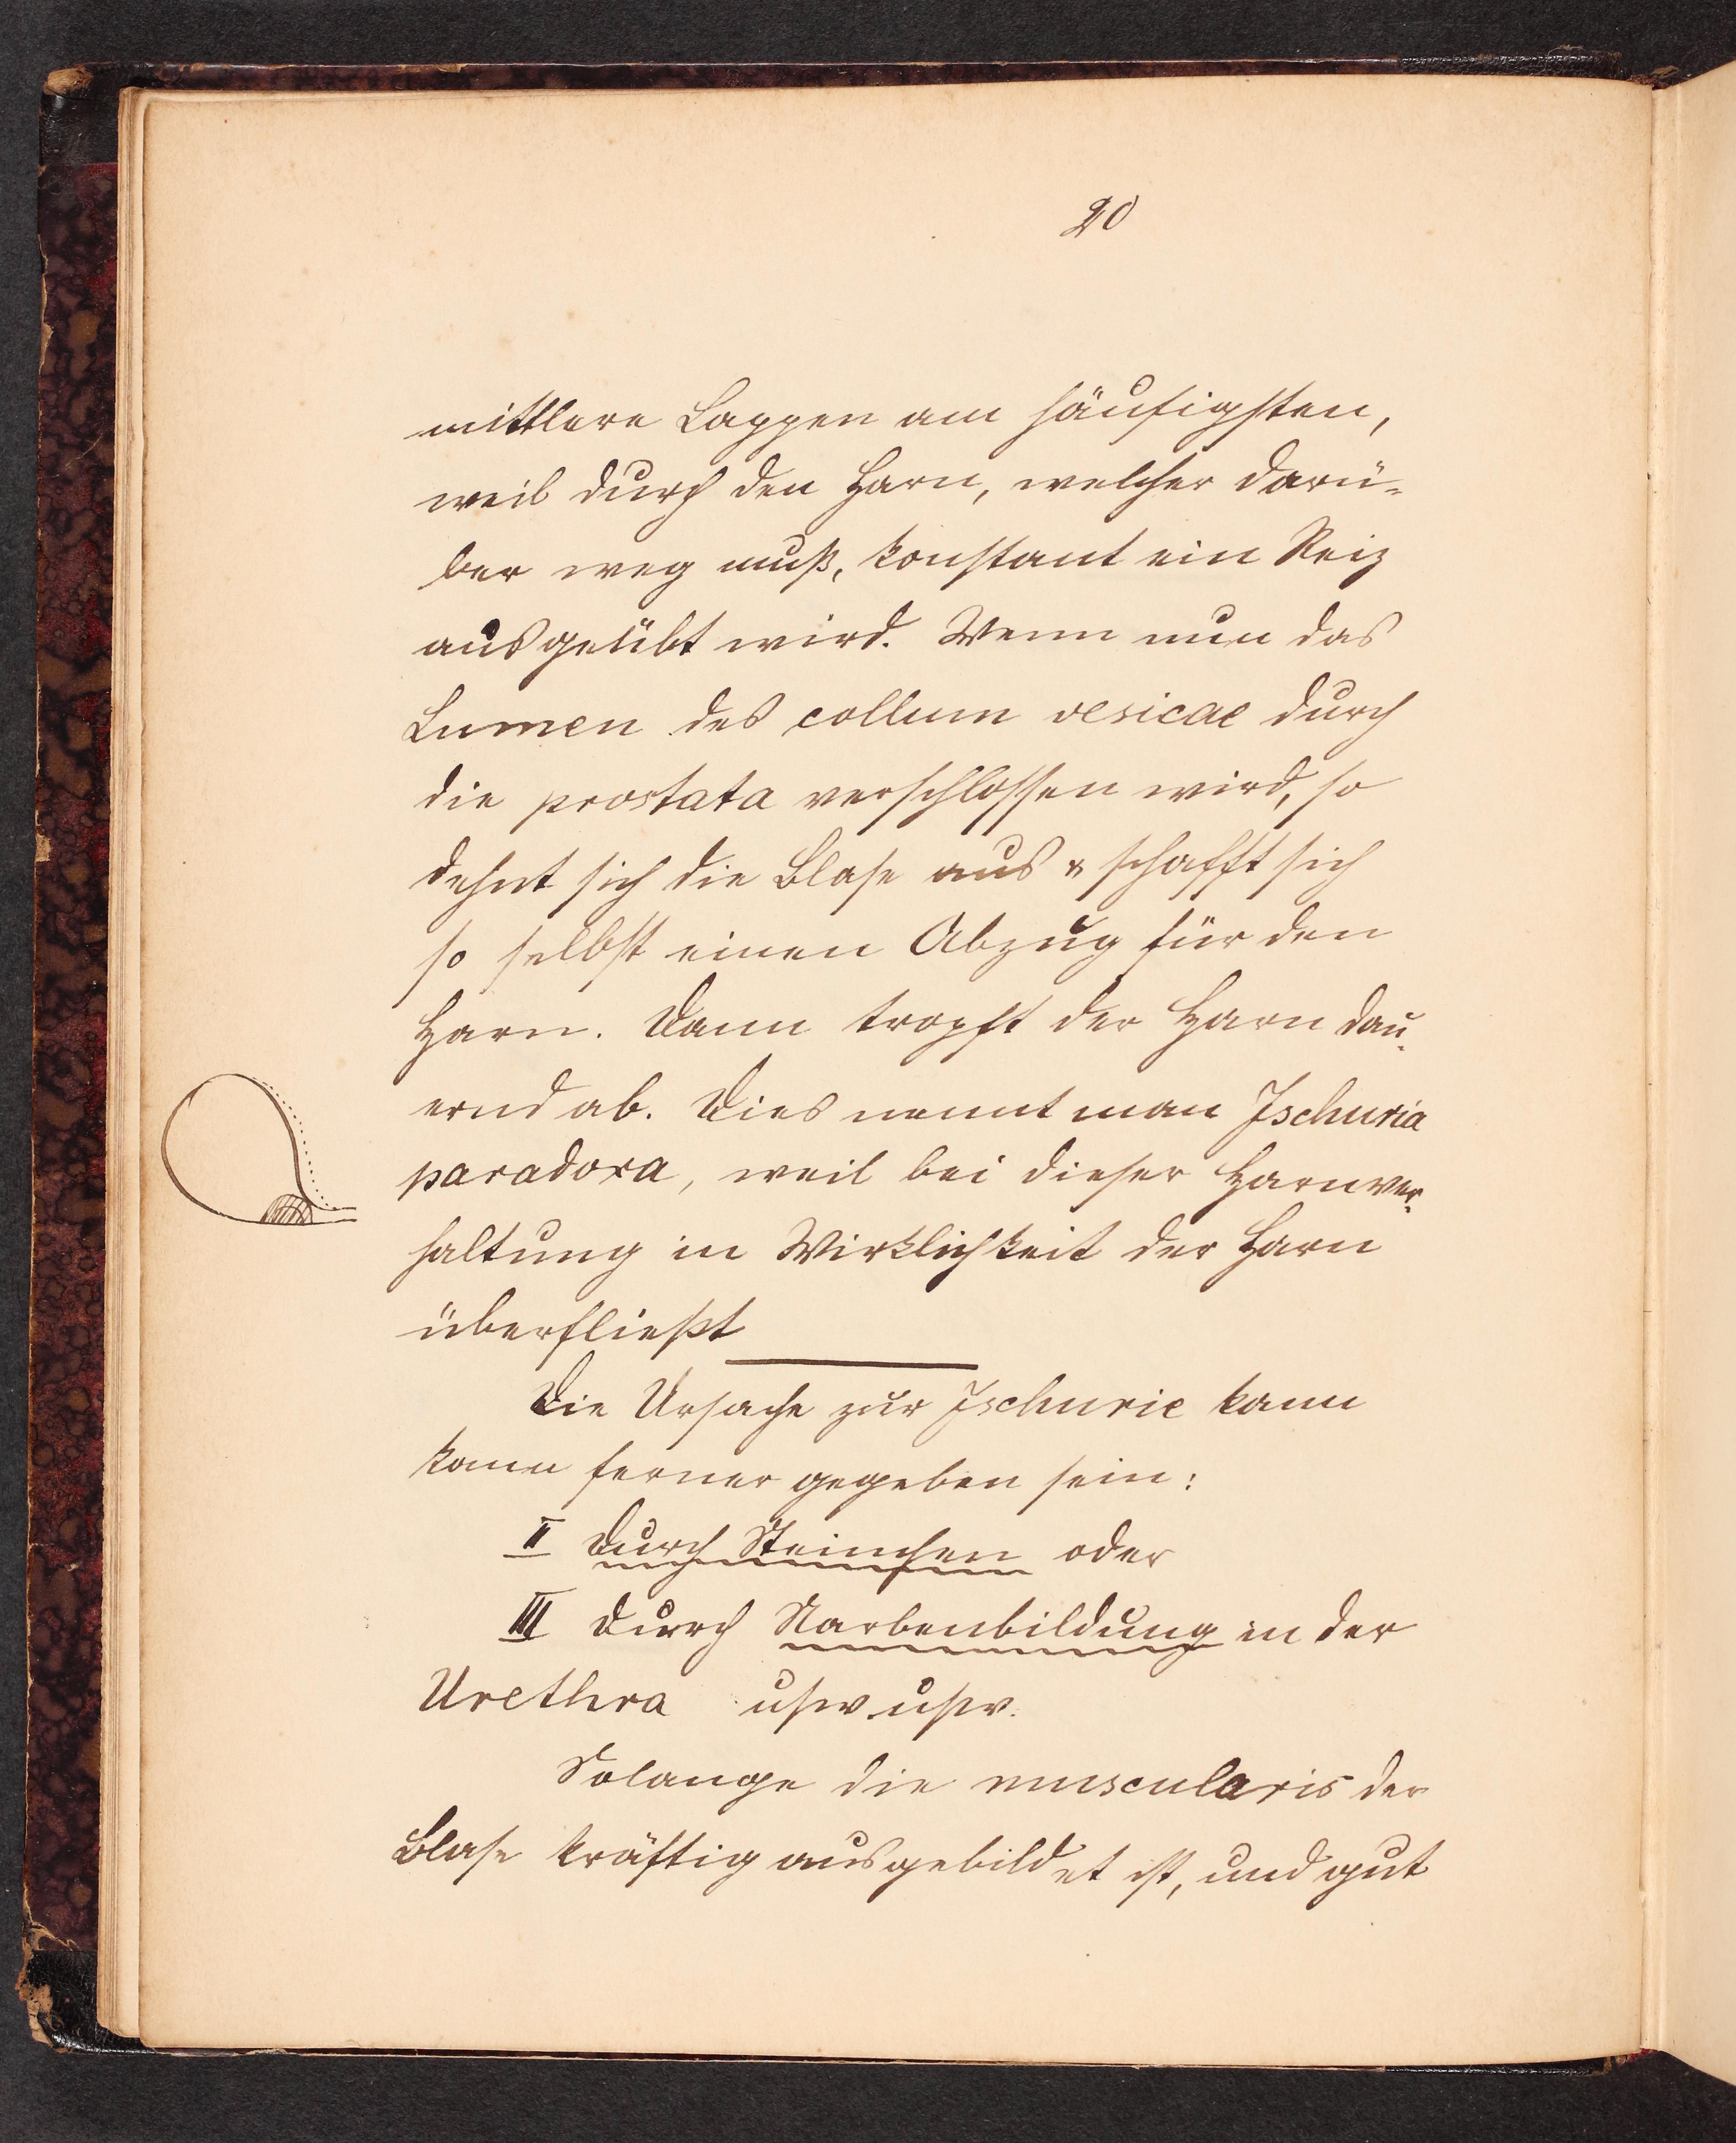 20
mittlere Lappen am häufigsten,
weil durch den Harn, welcher darü-
ber weg muß, konstant ein Reiz
ausgeübt wird. Wenn nun das
Lumen des collum vesicae durch
die prostata verschlossen wird, so
dehnt sich die Blase aus & schafft sich
so selbst einen Abzug für den
Harn. Dann tropft der Harn dau-
ernd ab. Dies nennt man Ischuria
paradoxa, weil bei dieser Harnver-
haltung in Wirklichkeit der Harn
überfließt
Die Ursache zur Ischurie kann
kann ferner gegeben sein:
II Durch Steinchen oder
III Durch Narbenbildung in der
Urethra usw. usw.
Solange die muscularis der
Blase kräftig ausgebildet ist, und gut